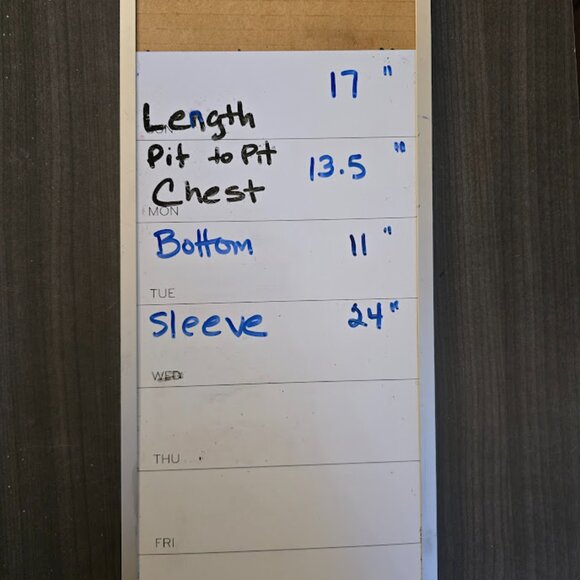 17 "
Length
Pit to Pit
13.5 "
Chest
MON
Bottom 11 "
TUE
Sleeve 24"
WED
THU
FRI